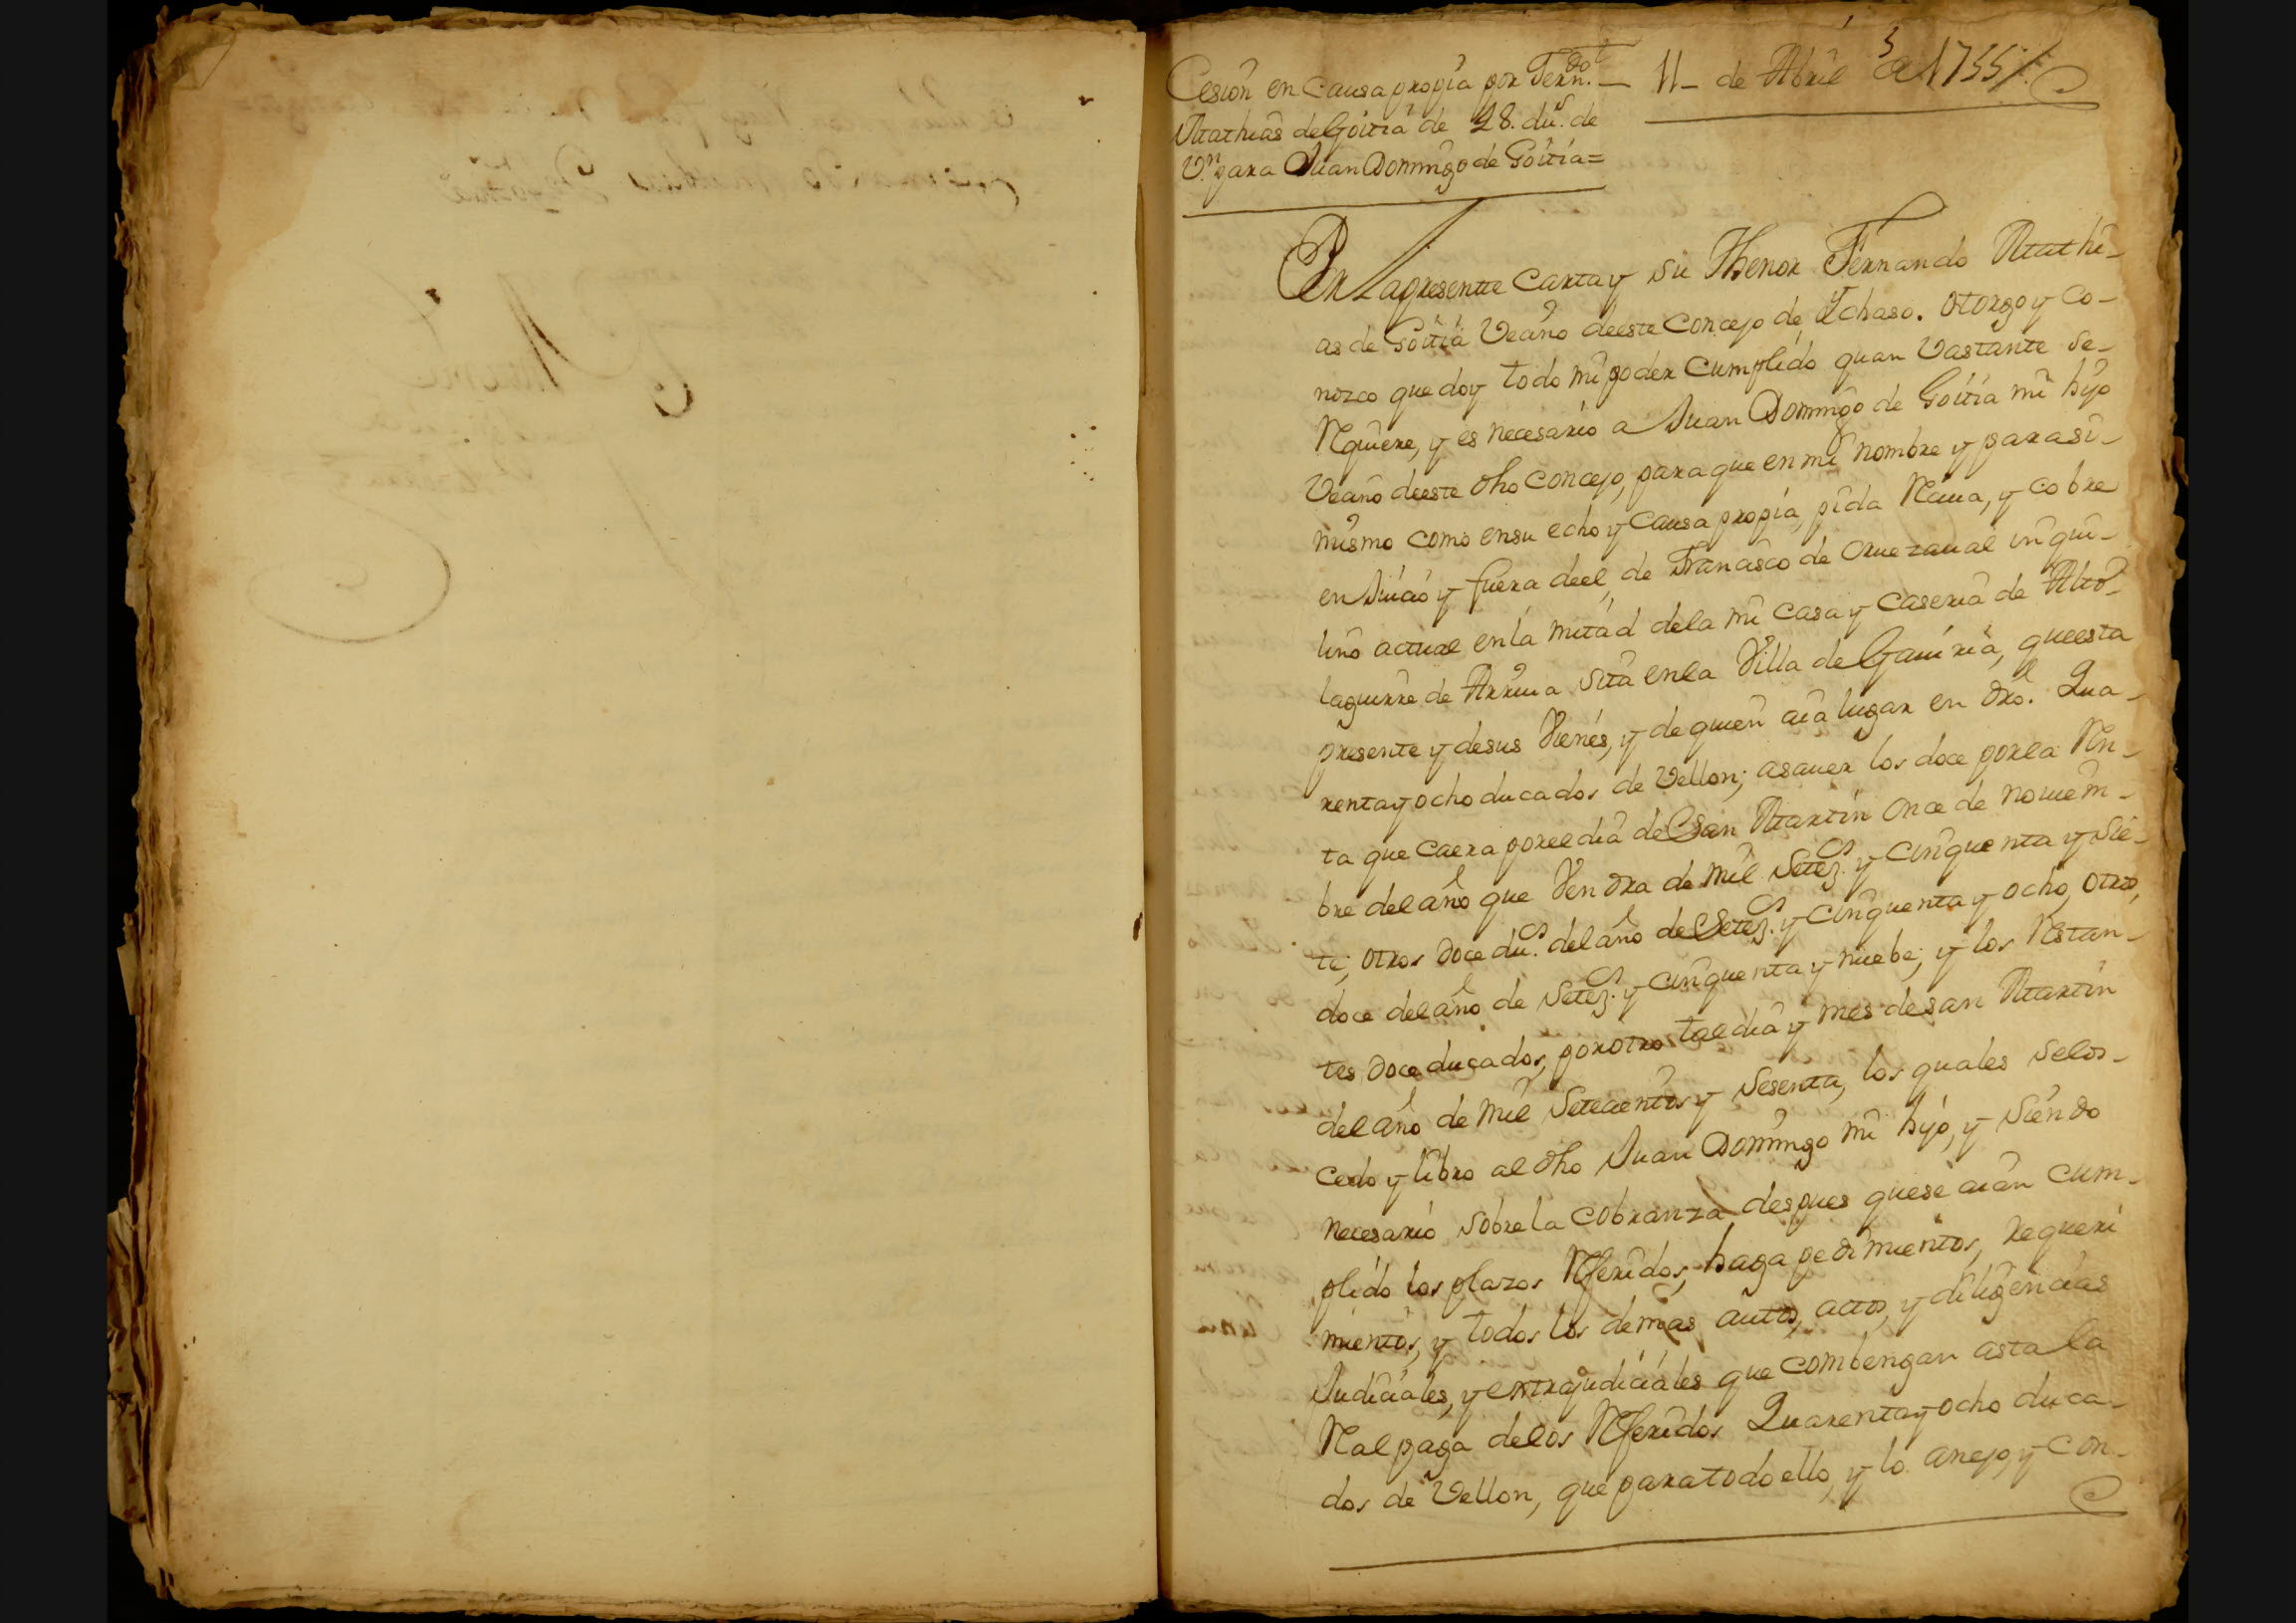 Cesion en Causa propia por Fern.do
Mathias de Goitia de 48. du.s de
V.n para Juan Domingo de Goitia=
11 de Abril de 1755
Por la presentte Carta y su Thenor Fernando Mathi-
as de Goitia Vecino deeste Concejo de Ychaso. otorgo y co-
nozco que doy todo mi poder Cumplido quan Vastante se-
Requiere, y es necesario a Juan Domingo de Goitia mi hijo
Vecino deeste dho Concejo, para que en mi nombre y para si-
mismo como en su echo y Causa propia, pida Reciua, y cobre
en Juicio y fuera deel, de Francisco de Oruezaual inqui-
lino actual en la mitad dela mi Casa y Caseria de
laguirre de Arriua Sita en la Villa de Gauiria, que esta
presente y de sus Vienes, y de quien aia lugar en dro. Qua-
renta y ocho ducados de Vellon; asauer los doce por la Ren-
ta que Caera por el dia de San Martin once de Nouiem-
bre del año que Vendra de mil Setez.s y Cinquenta y Sie-
te; otros doce du.s del año de Setez.s y Cinquenta y ocho, otros,
doce del año de Setez.s y Cinquenta y nuebe; y los Restan-
tes doce ducados, por otro tal dia y mes de san Martin
del año de mil Setecientos y Sesenta, los quales Selos-
cedo y libro al dho Juan Domingo mi hijo, y Siendo
necesario sobre la Cobranza despues que se aian Cum-
plido los plazos Referidos, haga pedimientos, requeri
mientos, y todos los demas autos, actos, y diligencias
Judiciales, y extrajudiciales que Combengan asta la
Real paga delos Referidos Quarenta y ocho duca-
dos de Vellon, que para todo ello, y lo anejo, y con-